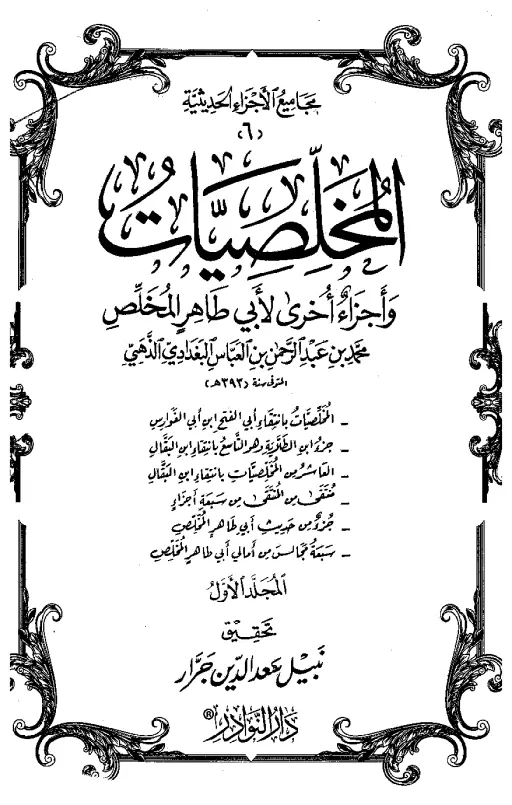 مجَاميعُ الأجْزَاءِ الحَديثيَّة
(٦)
المُخَلِّصِيَّاتُ
وَأَجزَاءٌ أُخرىٰ لأبي طَاهِرٍ المُخَلِّصِ
محمّد بن عَبْدِ الرَّحمٰنِ بنِ العَبَّاسِ البَغدَادِيِّ الذَّهَبيِّ
المتوفى سنة (٣٩٣هـ)
- المُخَلِّصيَّاتُ بانتِقَاءِ أبي الفَتحِ ابنِ أبي الفَوارِسِ
- جزءُ ابنِ الطَّلَّايَةِ وهو التَّاسِعُ بانتِقَاءِ ابنِ البَقَّالِ
- العَاشِرُ مِنَ المُخَلِّصيَّاتِ بانتِقَاءِ ابنِ البَقَّالِ
- مُنتَقىً مِنَ المُنتَقَىٰ مِن سَبعَةِ أجزَاءٍ
- جُزءٌ مِن حَديثِ أبي طَاهِرٍ المُخَلِّصِ
- سَبعَةُ مَجَالِسَ مِن أمَالي أبي طاهِرٍ المُخَلِّصِ
المُجَلَّدُ الأوَّلُ
تحقِيق
نَبيْل سَعد الدِّين جَرَّار
دَارُ النَّوَادِرِ ®